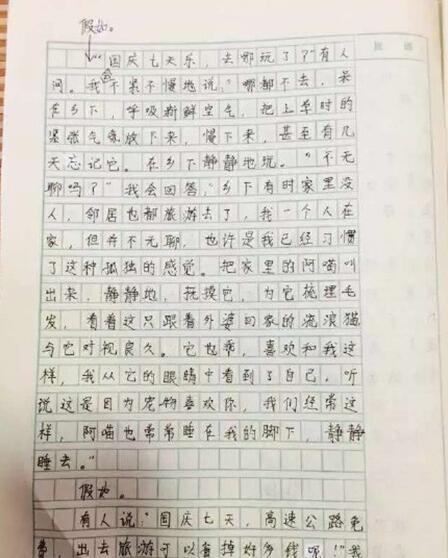 假如。
"国庆七天乐,去哪玩了?"有人
问。我会不紧不慢地说,"哪都不去,呆
在乡下,呼吸新鲜空气,把上学时的
紧张气氛放下来,慢下来,甚至有几
天忘记它。在乡下静静地玩。""不无
聊吗?"我会回答,"乡下有时家里没
人,邻居也都旅游去了,我一个人在
家,但并不无聊,也许是我已经习惯
了这种孤独的感觉。把家里的阿喵叫
出来,静静地,抚摸它,为它梳理毛
发,看着这只跟着外婆回家的流浪猫
与它对视良久。它也乖,喜欢和我这
样,我从它的眼睛中看到了自己,听
说这是因为宠物喜欢你,我们经常这
样,阿喵也常常睡在我的脚下,静静
睡去。"
假如。
有人说:"国庆七天,高速公路免
费,出去旅游可以省掉好多钱呢!"我